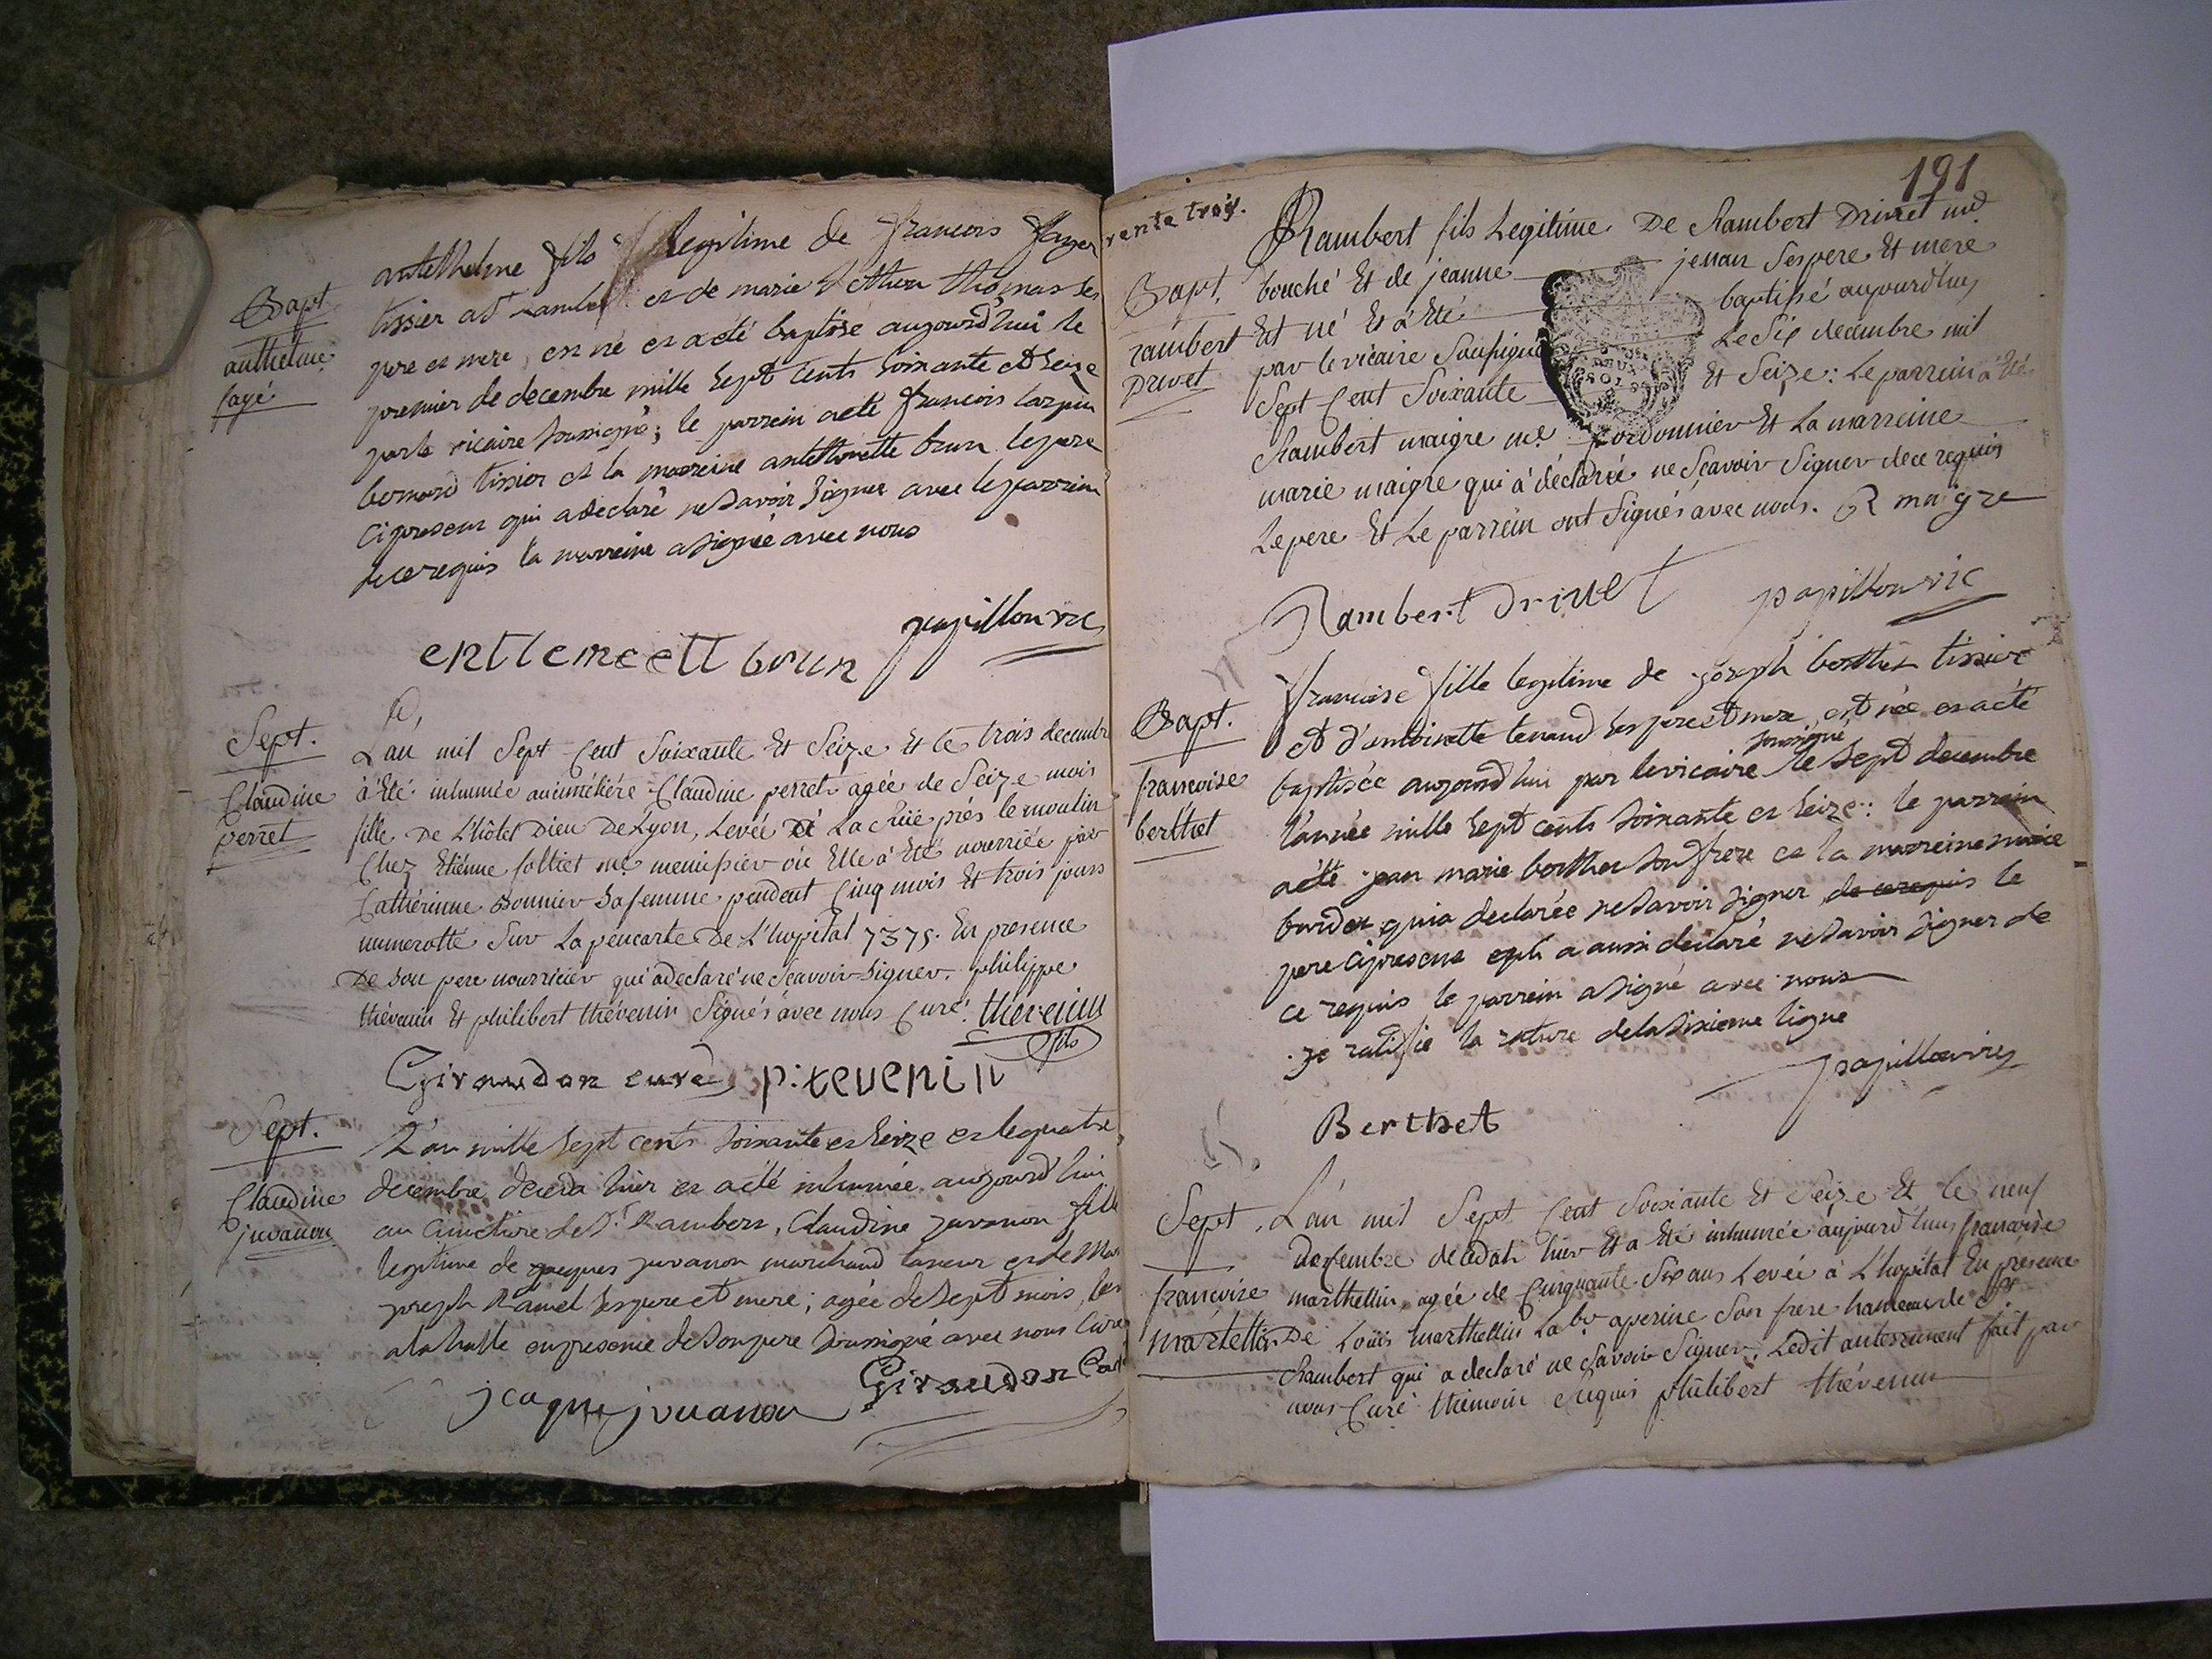 Bapt
anthelme
fayé
antelhelme fils legitime de francois fayer
tissier a st rambert et de marie thomas ses
pere et mere, est né et a été baptise aujourd'hui le
premier de decembre mille sept cents soixante et seize
par le vicaire soussigné; le parrein a eté francois
bernard tissier et la marreine anthelmette brun le pere
ci present qui a declaré ne savoir signer avec le parrein
de ce requis la marreine a signée avec nous
papillon vic
entlemeett brun
Sept.
Claudine
perret
L'an mil Sept Cent Soixante Et Seize Et le trois decembre
à Eté inhumée au cimétiére Claudine perret agée de Seize mois
fille De L'hôtel Dieu De Lyon, Levée à La Ruë prés le moulin
Chez Etiénne folliet me menuisier où Elle à Eté nourriée par
Cathérinne bonnier sa femme pendent Cinq mois Et trois jours
numerotté Sur La pencarte De L'hopital 7375. En presence
De son pere nourricier qui a declaré ne Scavoir signer. philippe
thévenin Et philibert thévenin Signés avec nous Curé. thevenin
fils
Giraudon curé p: tevenin
Sept.
Claudine
juvanon
L'an mille sept cents soixante et seize et le quatre
decembre deceda hier et a été inhumée aujourd'hui
au cimetiere de St Rambert, Claudine juvanon fille
legitime de jacques juvanon marchand taneur et de
joseph Ramel ses pere et mere; agée de sept mois,
a la halle en presence de son pere soussigné avec nous Curé
jcaque juvanon Giraudon Curé
191
rente trois.
Bapt.
rambert
Drivet
Rambert fils Legitime De Rambert Drivet md
bouché Et de jeanne jenan Ses pere Et mere
Est né Et à Eté baptisé aujourd'huy
par le vicaire Soussigné Le Six decembre mil
Sept Cent Soixante Et Seize: Le parrein à Eté
Rambert maigre me Cordonnier Et La marreine
marie maigre qui à déclarée ne Scavoir Signer de ce requis
Le pere Et Le parrein ont Signés avec nous. R maigre
Rambert Drivet papillon vic
DEUX
SOLS
Bapt.
francoise
berthet
francoise fille legitime de joseph berthet tissier
et d'antoinette tenand ses pere et mere, est née et a été
soussigné
baptisée aujourd'hui par le vicaire le sept decembre
l'année mille sept cents soixante et seize: le parrein
a été jean marie berthet son frere et la marreine marie
burdet qui a declarée ne savoir signer de ce requis le
pere ci present a aussi declaré ne savoir signer de
ce requis le parrein a signé avec nous
je ratifie la rature de la sixieme ligne
papillon vic
Berthet
Sept.
francoise
martellin
L'an mil Sept Cent Soixante Et Seize Et le neuf
Decembre décédah hier Et a Eté inhumée aujourd'huy francoise
marthellin, agée de Cinquante Six ans Levée à L'hopital En presence
De Loüis marthellin Labr aperine Son frere hameau de St
Rambert qui a declaré ne Savoir Signer. Ledit enterrement fait par
nous Curé thémoin requis philibert thévenin